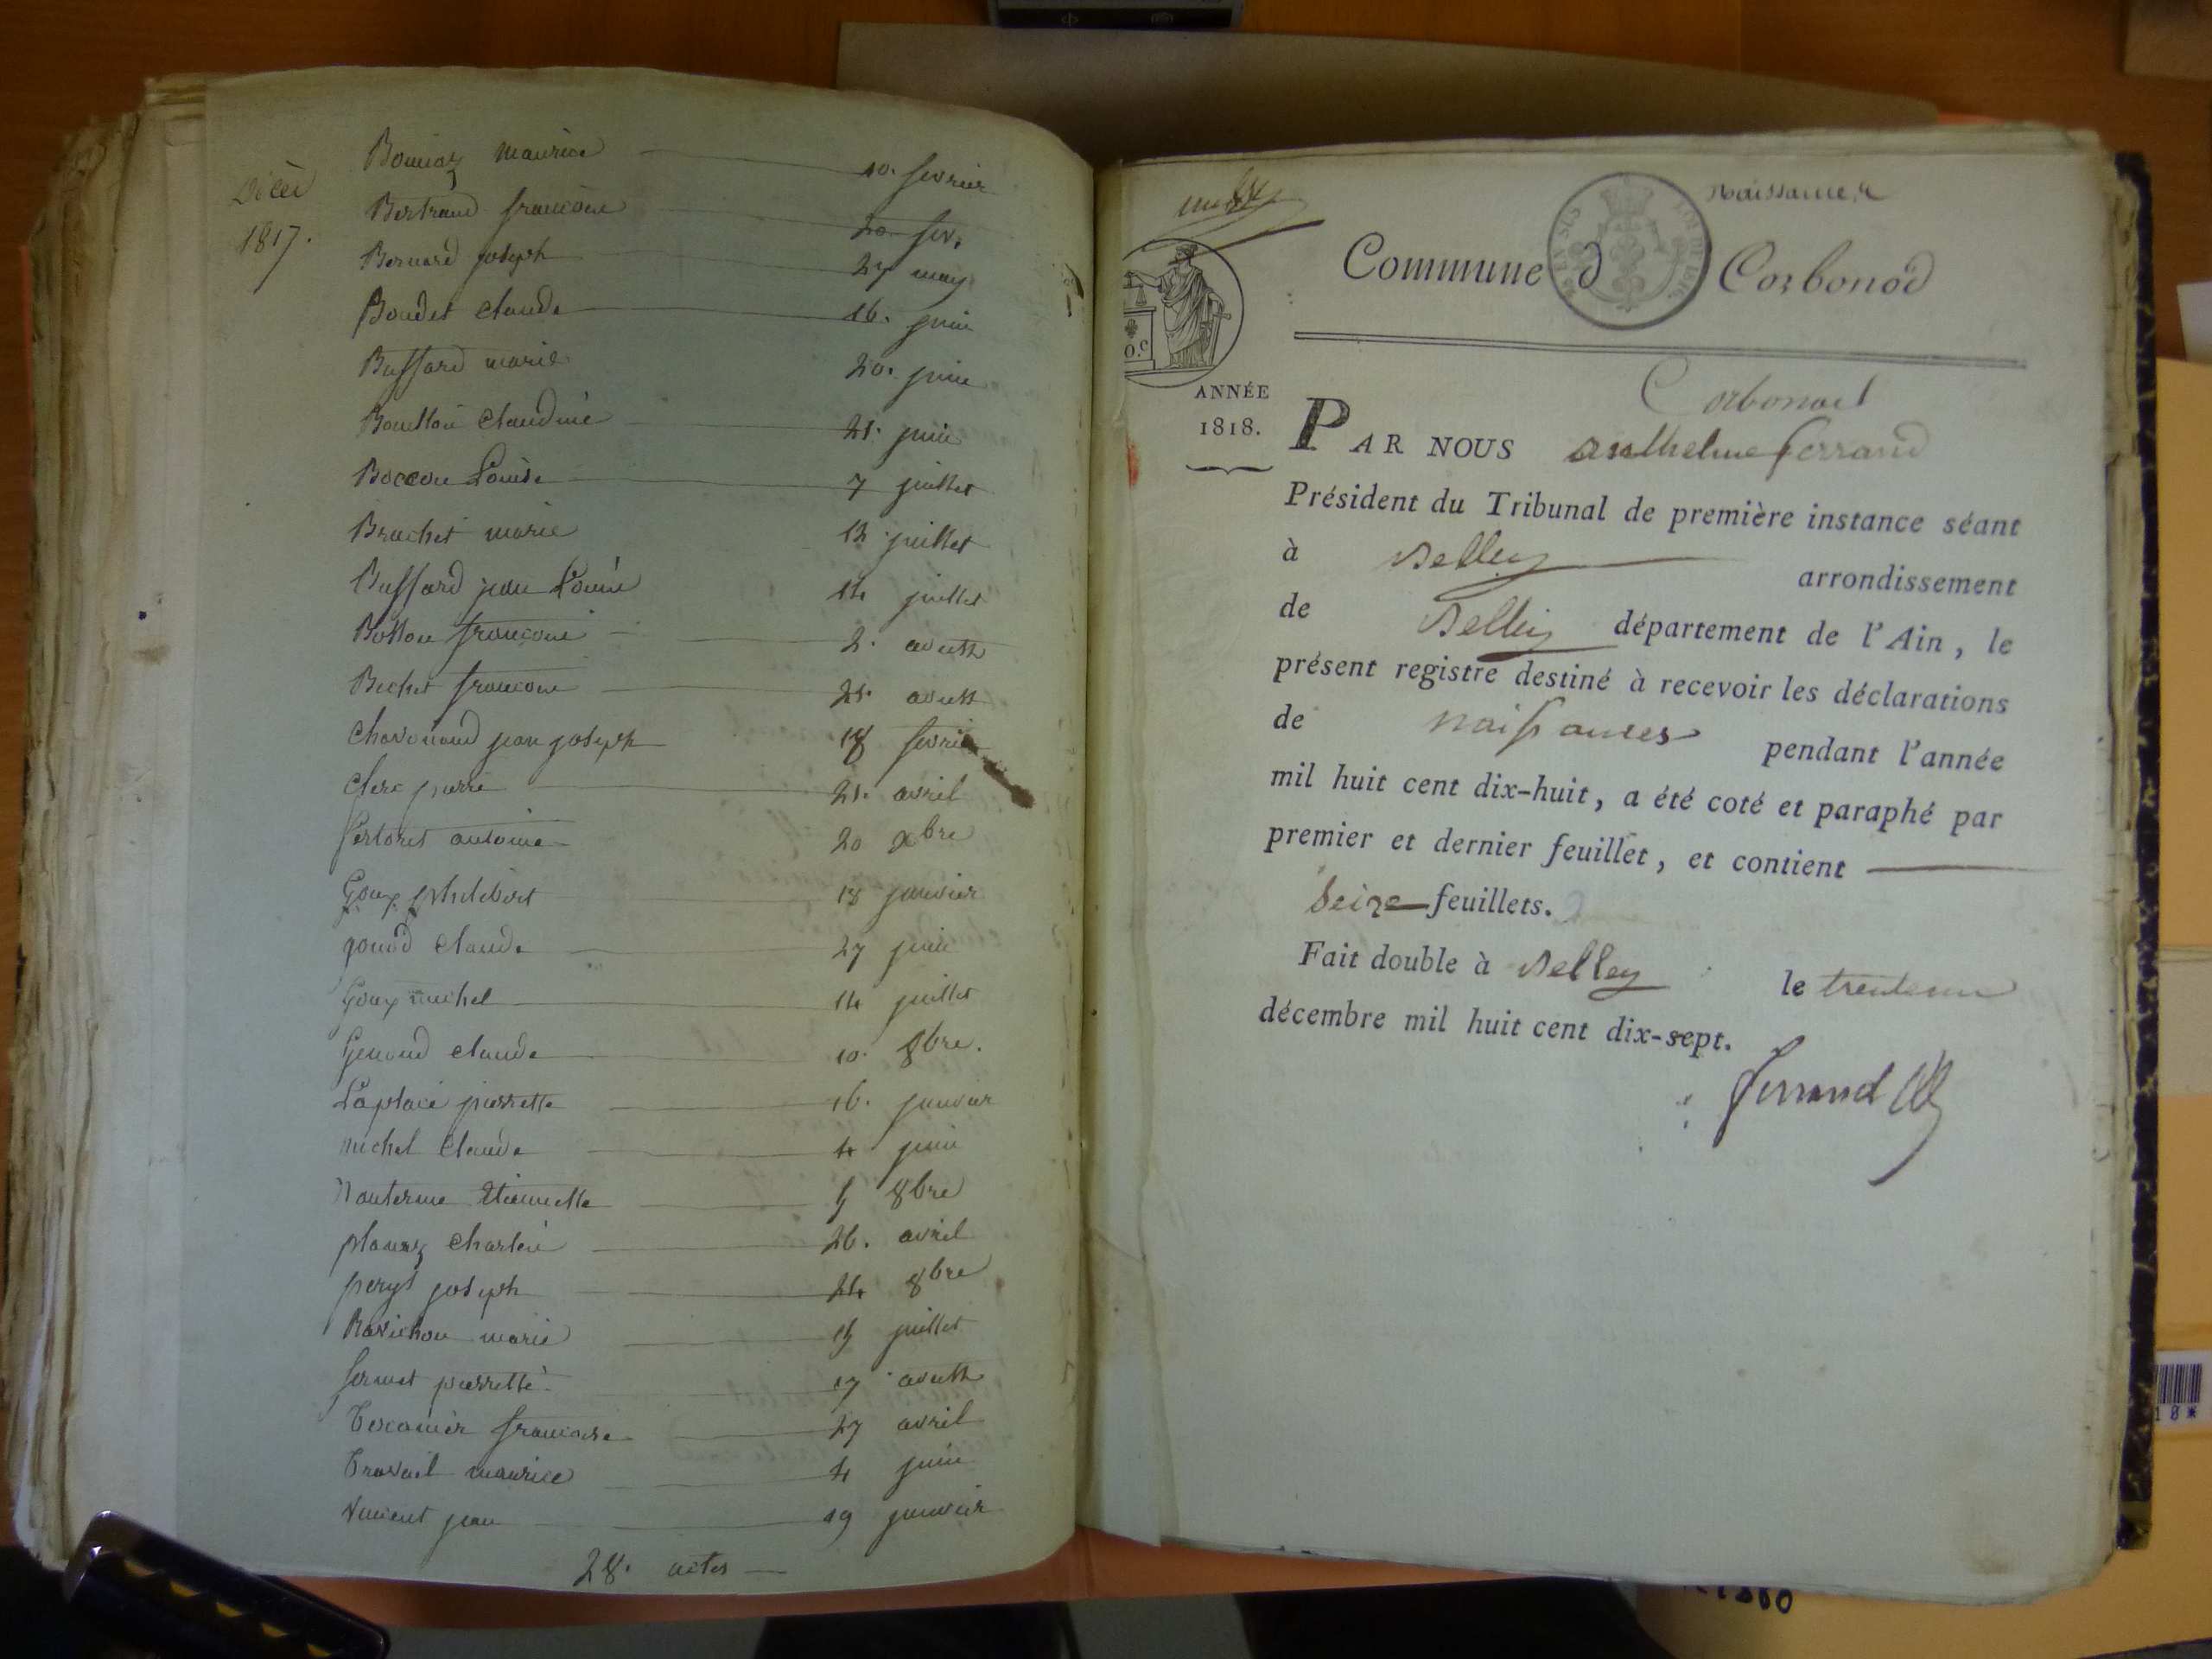 Décès
1817.
Bornioz maurice 10. fevrier
Bertrand francoise 20 fev.
Bernard joseph 27 may
Boudet claude 16. juin
Buffard marie 20. juin
Boullon Claudine 21. juin
Boccon Louise 7 juillet
Brachet marie 13 juillet
Buffard jean Louis 14 juillet
Bollon francoise 2. aoutt
Bechet francoise 21. aoutt
jean joseph 18 fevrier
Clerc pierre 21. avril
fertoret antoine 20 xbre
Goux philibert 18 janvier
gonod Claude 27 juin
Goux michel 14 juillet
Genoud claude 10. 8bre.
Laplace pierrette 16. janvier
michel Claude 4 juin
Etiennette 8bre
26. avril
joseph 24 8bre
Ravichon marie 15 juillet
fornet pierrette 17 aoutt
francoise 27 avril
Travail maurice 4 juin
vincent jean 19 janvier
28. actes
Naissances
Commune d Corbonod
ANNÉE
1818.
Corbonod
PAR NOUS anthelme ferrand
Président du Tribunal de première instance séant
à Belley arrondissement
de Belley département de l'Ain, le
présent registre destiné à recevoir les déclarations
de naissances pendant l'année
mil huit cent dix-huit, a été coté et paraphé par
premier et dernier feuillet, et contient
Seize feuillets.
Fait double à Belley le trente un
décembre mil huit cent dix-sept.
ferrand